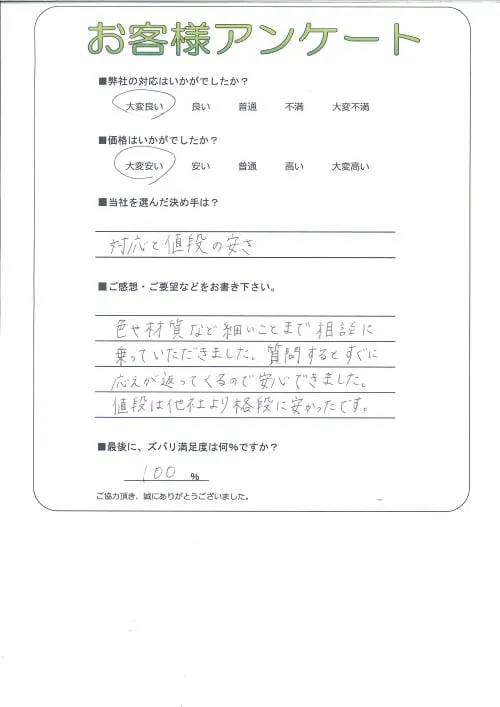 お客様アンケート
■弊社の対応はいかがでしたか？
大変良い 良い 普通 不満 大変不満
■価格はいかがでしたか？
大変安い 安い 普通 高い 大変高い
■当社を選んだ決め手は？
対応と値段の安さ
■ご感想・ご要望などをお書き下さい。
色や材質など細いことまで相談に
乗っていただきました。質問するとすぐに
応えが返ってくるので安心できました。
値段は他社より格段に安かったです。
■最後に、ズバリ満足度は何%ですか？
100 %
ご協力頂き、誠にありがとうございました。